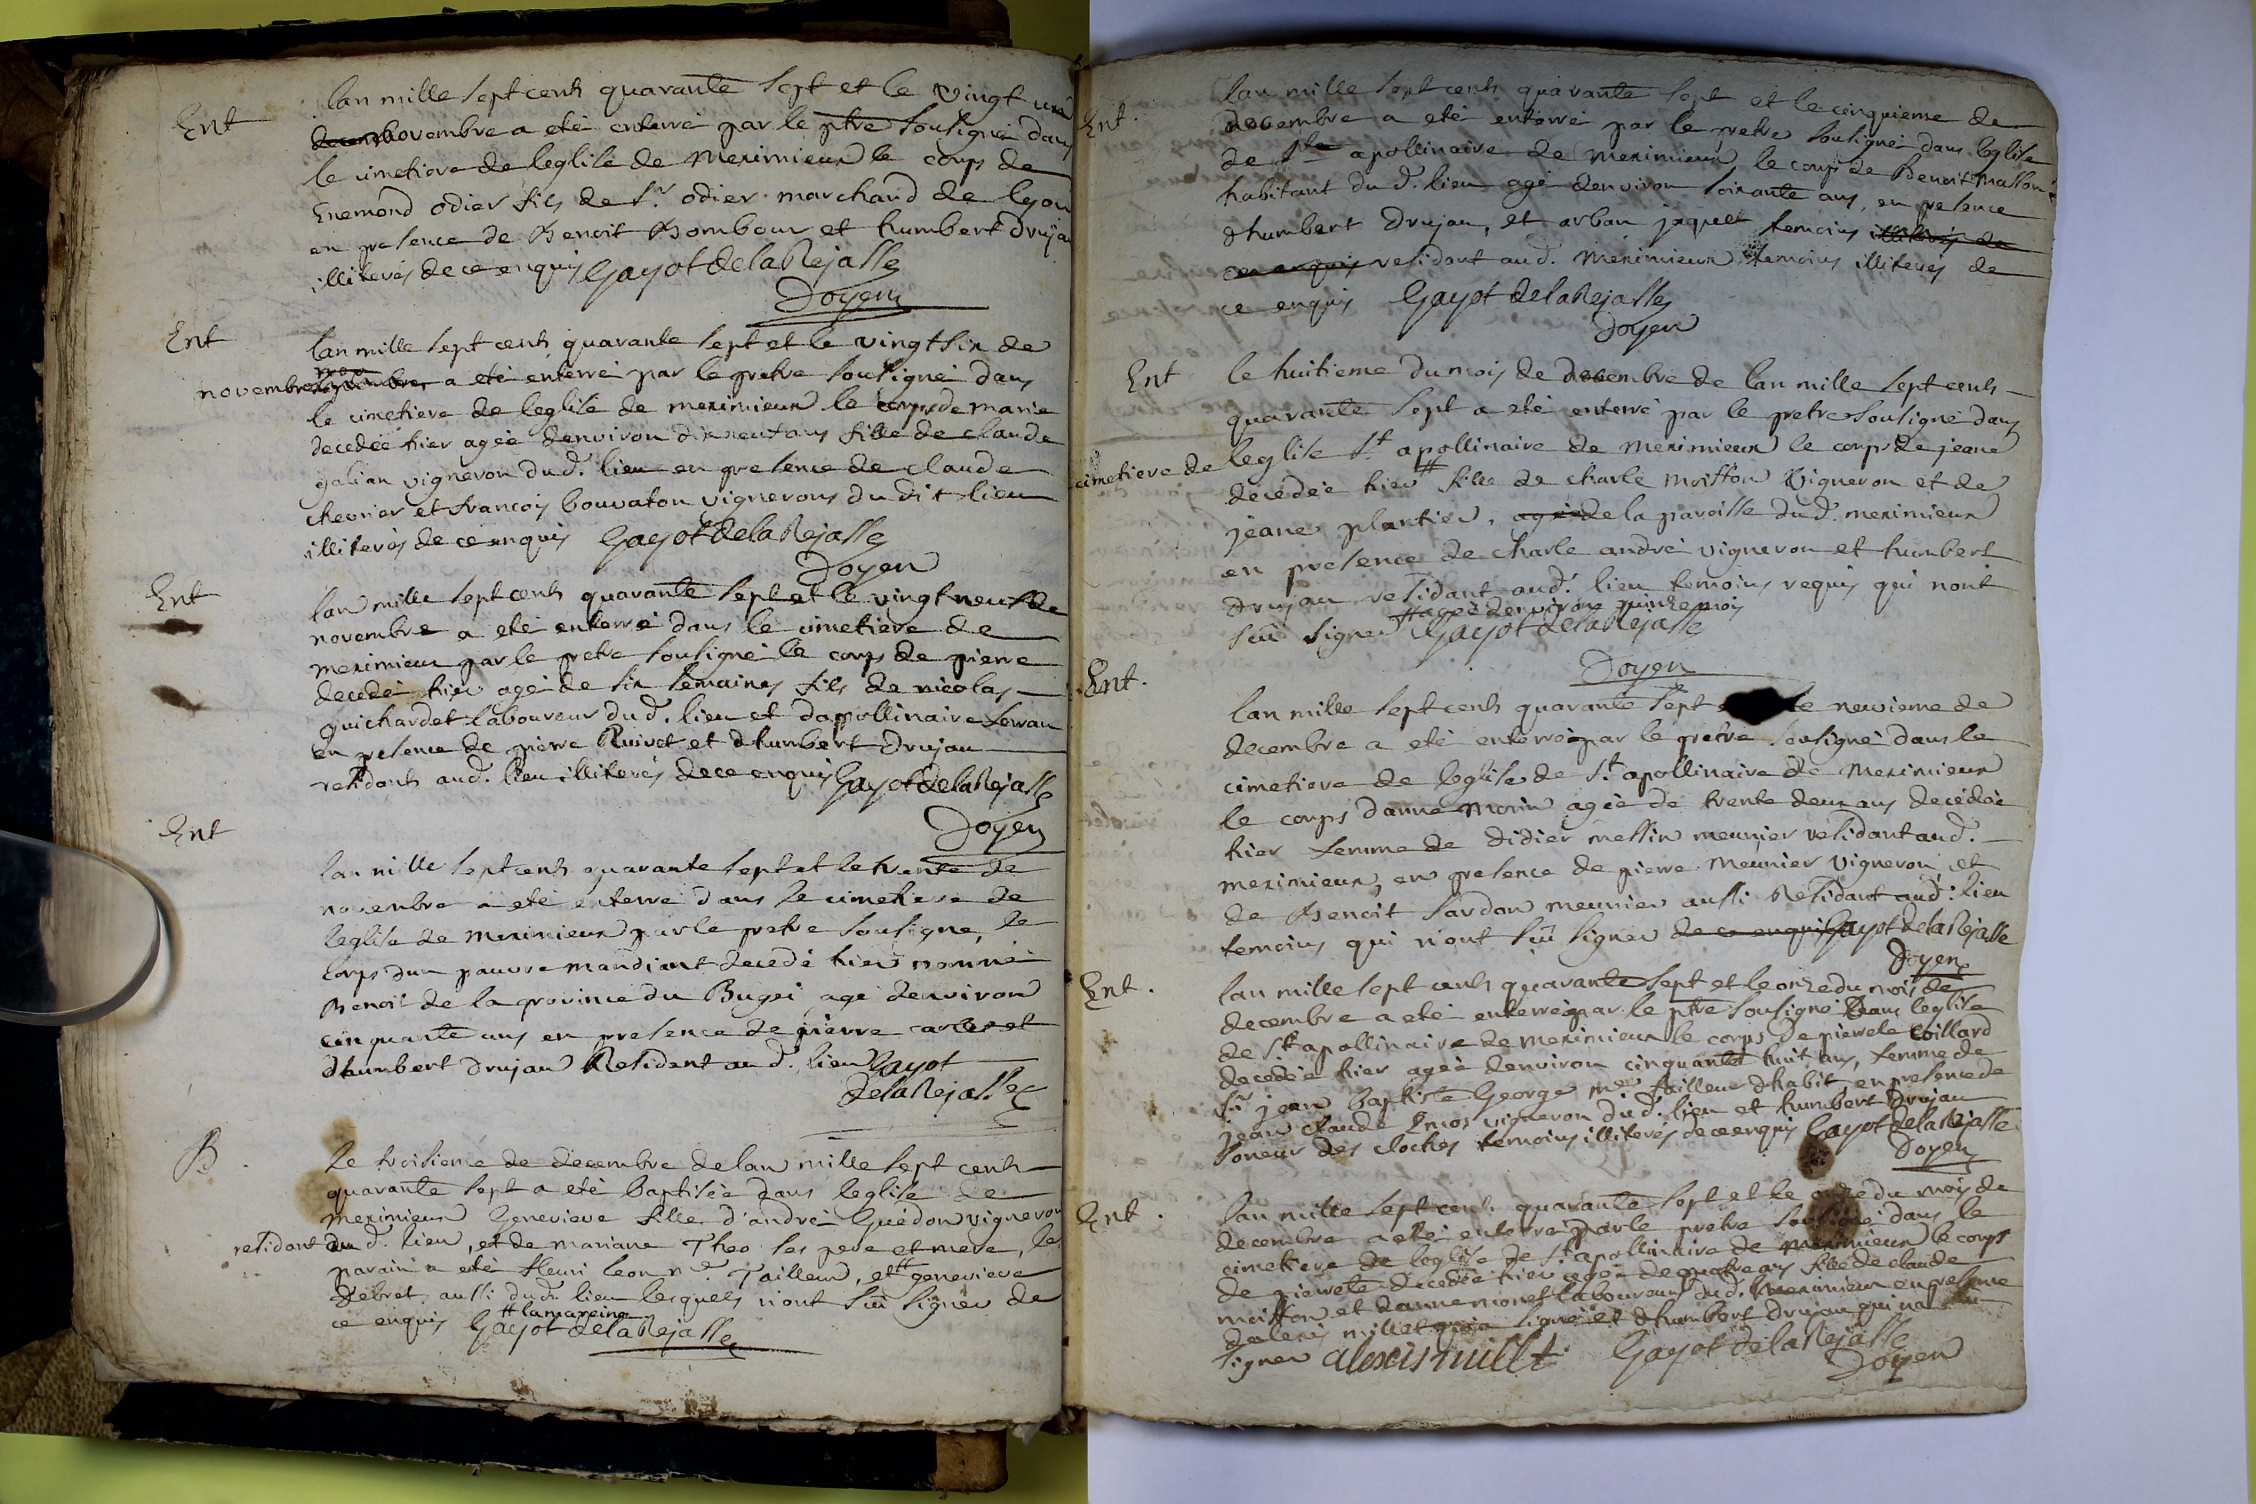 Ent
lan mille sept cents quarante sept et le vingt un
novembre a eté enterré par le ptre sousigné dans
le cimetiere de leglise de meximieux le corps de
Enemond odier fils de Sr. odier marchand de lyon
en presence de Benoit Bombour et humbert Drujan
illiterés de ce enquis Gayot de la Rejasse
Doyen
Ent
lan mille sept cents quarante sept et le vingt six de
novembre a eté enterré par le pretre sousigné dans
le cimetiere de leglise de meximieux le corps de marie
decedée hier agée denviron dix neuf ans fille de claude
galian vigneron dud. lieu en presence de claude
chevrier et francois bouvaton vignerons du dit lieu
illiterés de ce enquis Gayot de la Rejasse
Doyen
Ent
lan mille sept cents quarante sept et le vingt neuf de
novembre a eté enterré dans le cimetiere de
meximieux par le pretre sousigné le corps de pierre
decedé hier agé de six semaines fils de nicolas
guichardet laboureur dud. lieu et dapollinaire ferran
en presence de pierre Ruivet et dhumbert Drujan
residants aud. lieu illiterés de ce enquis Gayot de la Rejasse
Doyen
Ent
lan mille sept cents quarante sept et le trente de
novembre a eté enterré dans le cimetiere de
leglise de meximieux par le pretre sousigné, le
corps dun pauvre mandiant decedé hier nommé
Benoit de la province du Bugei agé denviron
cinquante ans en presence de pierre carles et
dhumbert Drujan Resident aud. lieu Gayot
de la Rejasse
B.
Le troisieme de decembre de lan mille sept cents
quarante sept a eté baptisée dans leglise de
meximieux Genevieve fille d'andré Guédon vigneron
residant aud. lieu, et de mariane Theo ses pere et mere, le
parain a eté fleuri leon me. Tailleur, et # genevieve
debret aussi dud. lieu lesquels n'ont sceu signer de
ce enquis # la mareine
Gayot de la Rejasse
Ent.
lan mille sept cents quarante sept et le cinquieme de
decembre a eté enterré par le pretre sousigné dans leglise
de St apollinaire de meximieux le corps de Benoit Masson
habitant du d. lieu agé denviron soixante ans, en presence
dhumbert Drujan, et arban jaquet temoins illiterés de
ce enquis residant aud. meximieux temoins illiterés de
ce enquis Gayot de la Rejasse
Doyen
Ent
le huitieme du mois de decembre de lan mille sept cents
quarante sept a eté enterré par le pretre sousigné dans
cimetiere de leglise St. apollinaire de meximieux le corps de jeane
decédée hier # fille de charle moisson vigneron et de
jeane plantier, agée de la paroisse dud. meximieux
en presence de charle andré vigneron et humbert
drujan residant aud. lieu temoins requis qui nont
# agée denviron quinze mois
sceu signer Gayot de la Rejasse
Doyen
Ent.
lan mille sept cents quarante sept le neuvieme de
decembre a eté enterré par le pretre sousigné dans le
cimetiere de leglise de St. apollinaire de meximieux
le corps danne morin agée de trente deux ans decédée
hier femme de didier messin meunier residant aud.
meximieux, en presence de pierre meunier vigneron et
de Benoit sardon meunier aussi Residant aud. lieu
temoins qui n'ont sceu signer de ce enquis Gayot de la Rejasse
Doyen
Ent.
lan mille sept cents quarante sept et le onze du mois de
decembre a eté enterré par le ptre sousigné dans leglise
de St apollinaire de meximieux le corps de pierrete Coillard
decedée hier agée denviron cinquante huit ans, femme de
Sr. jean Baptiste George me. tailleur dhabit en presence de
jean claude Enios vigneron dud. lieu et humbert Drujan
soneur des cloches temoins illiterés de ce enquis Gayot de la Rejasse
Doyen
Ent.
lan mille sept cents quarante sept et le onze du mois de
decembre a eté enterré par le pretre sousigné dans le
cimetiere de leglise de St. apollinaire de meximieux le corps
de pierrete decedée hier agée de quatre ans fille de claude
moisson et danne monet laboureur dud. meximieux en presence
dalexis millet qui a signé et dhumbert drujan qui na sceu
signer alexis millet Gayot de la Rejasse
Doyen